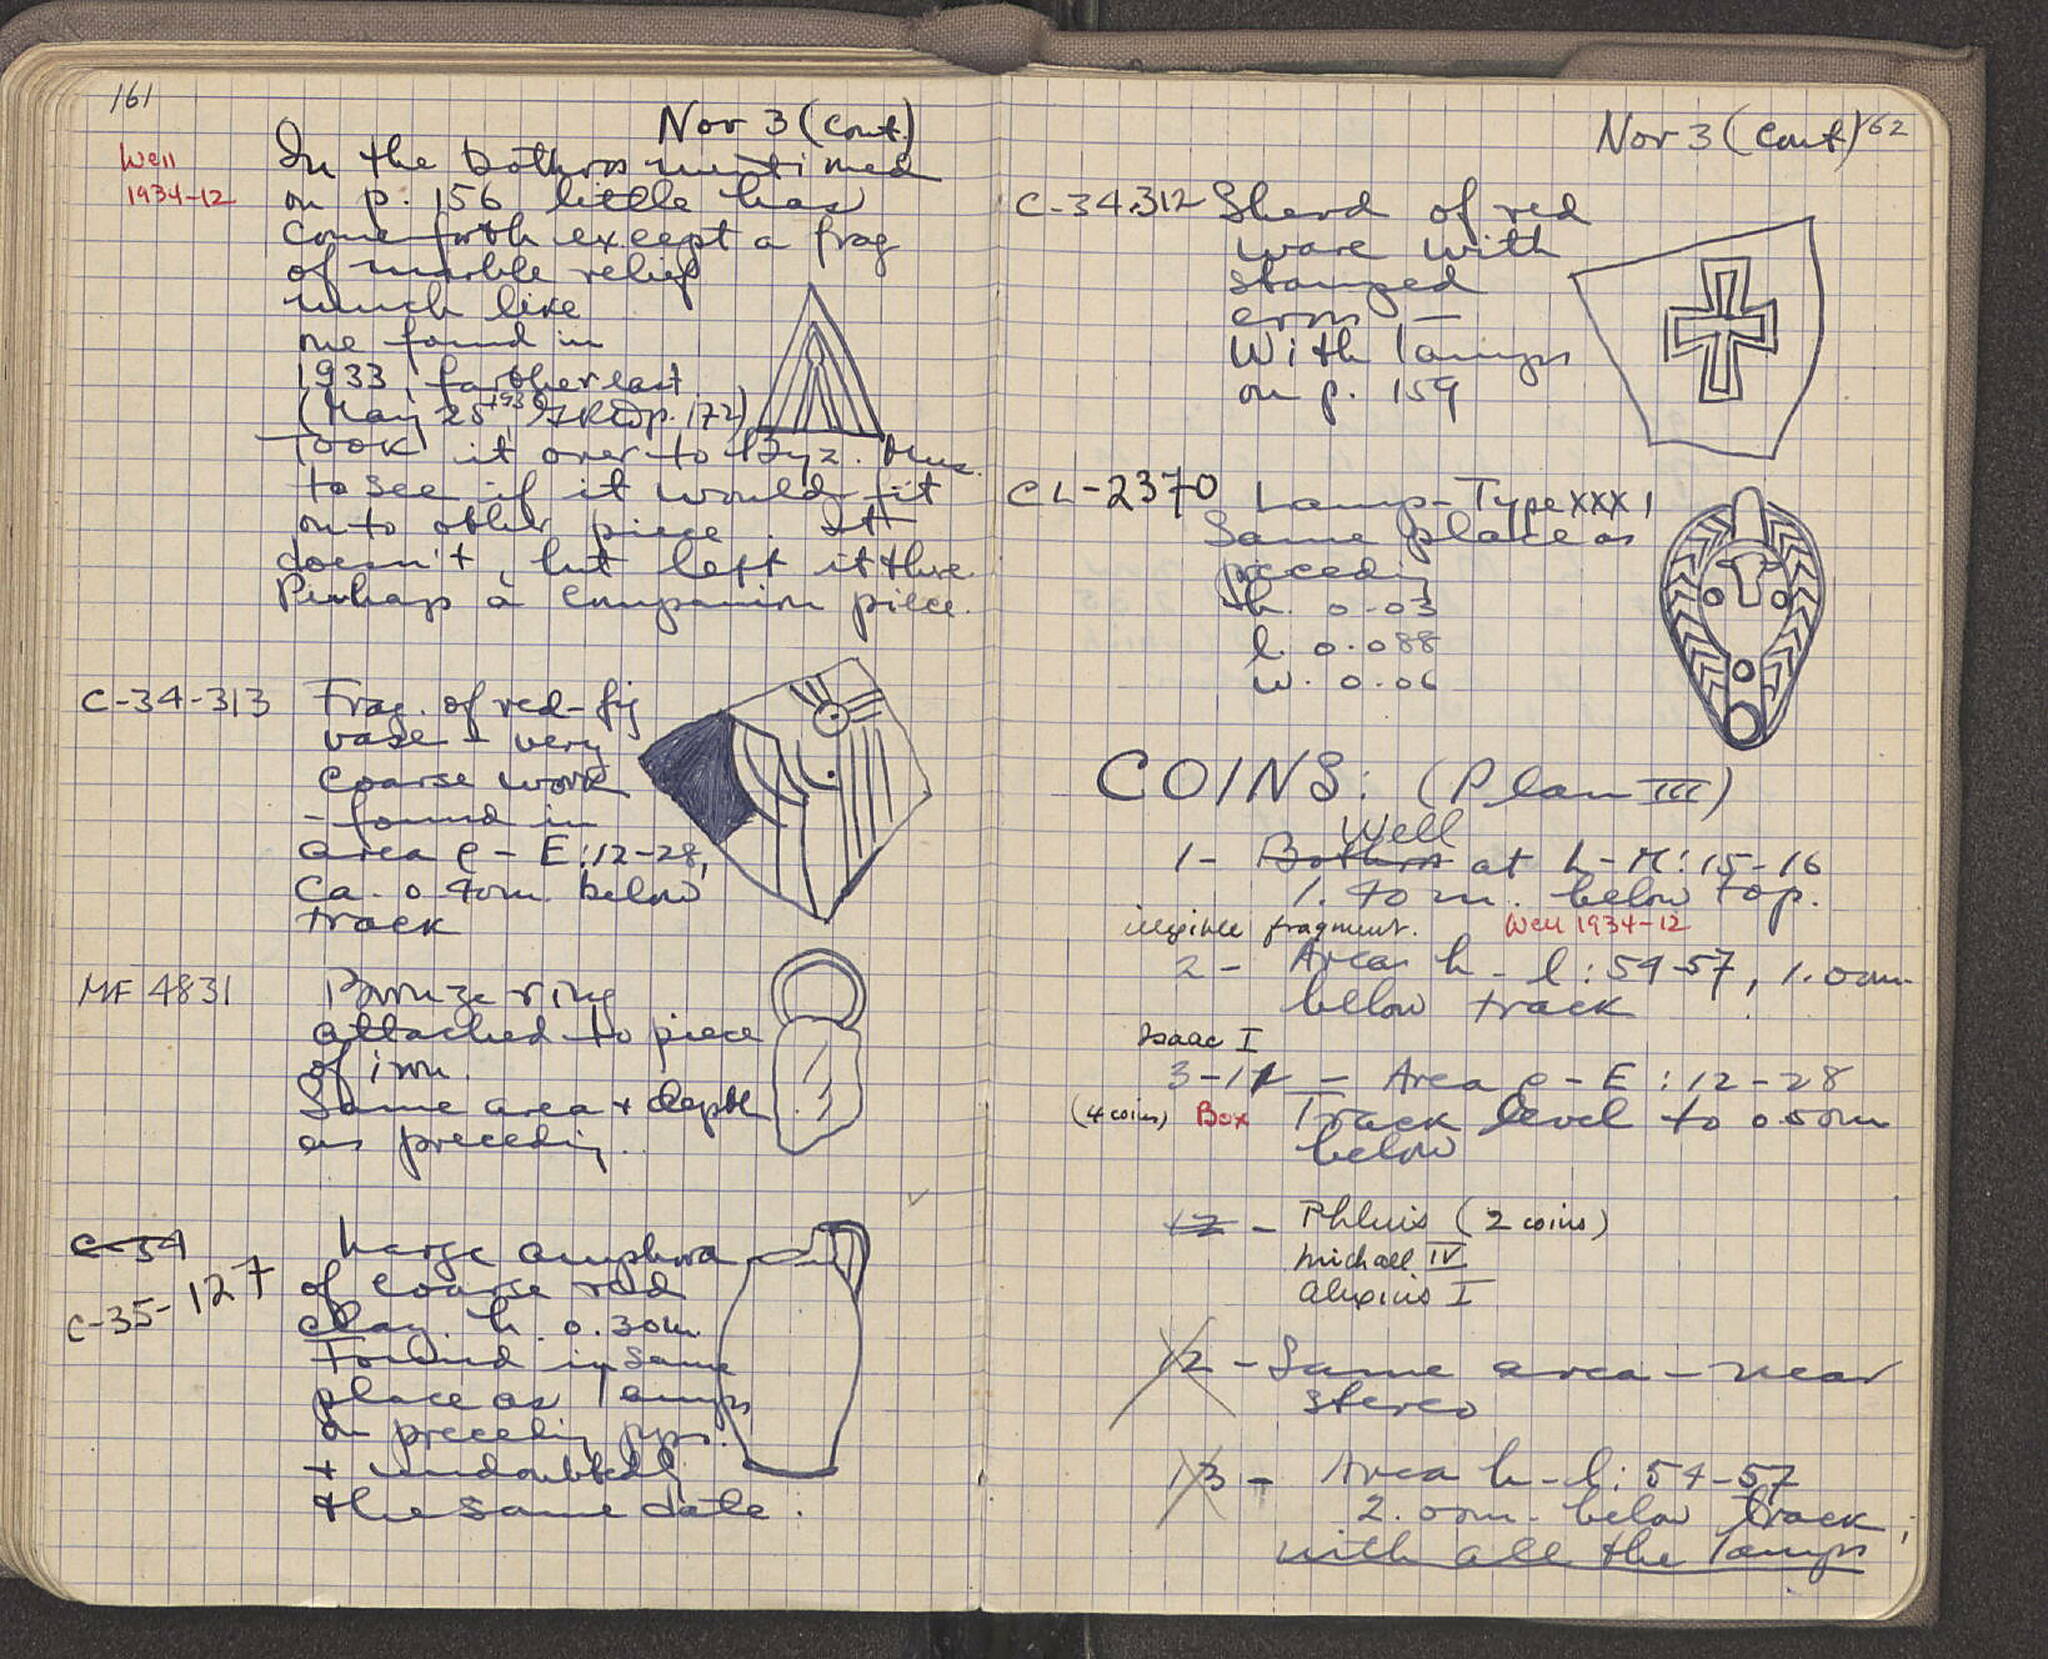 161
Nov 3 (cont.)
Well
1934-12
In the bothros mentioned
on p. 156 little has
come forth except a frag
of marble relief
much like
one found in
1933, farther east
(May 25, 1933, p. 172)
Took it over to Byz. Mus.
to see if it would fit
on to other piece. It
doesn't, but left it there.
Perhaps a companion piece.
C-34-313 Frag. of red-fig
vase - very
coarse work
- found in
area e - E:12-28,
Ca. 0.40m. below
track
MF 4831 Bronze ring
attached to piece
of iron.
Same area + depth
as preceding.
C-34
C-35-127
Large amphora
of coarse red
clay. h. 0.30m.
Found in same
place as lamps
on preceding pps.
+ undoubtedly
the same date.
Nov 3 (cont) 162
C-34-312 Sherd of red
ware with
stamped
cross —
With lamps
on p. 159
CL-2370 Lamp - Type XXXI
Same place as
preceding
h. 0.03
l. 0.088
w. 0.06
COINS: (Plan III)
Well
1- Bothros at L-M:15-16
1.40 m. below top.
illegible fragment. Well 1934-12
2- Area h-l:54-57, 1.0om.
below track
Isaac I
3-11 - Area e-E:12-28
(4 coins) Box Track level to 0.50m
below
12 - Phlius (2 coins)
Michael IV
Alexius I
12 - Same area - near
stereo
13 - Area h-l:54-57
2.0om. below track,
with all the lamps